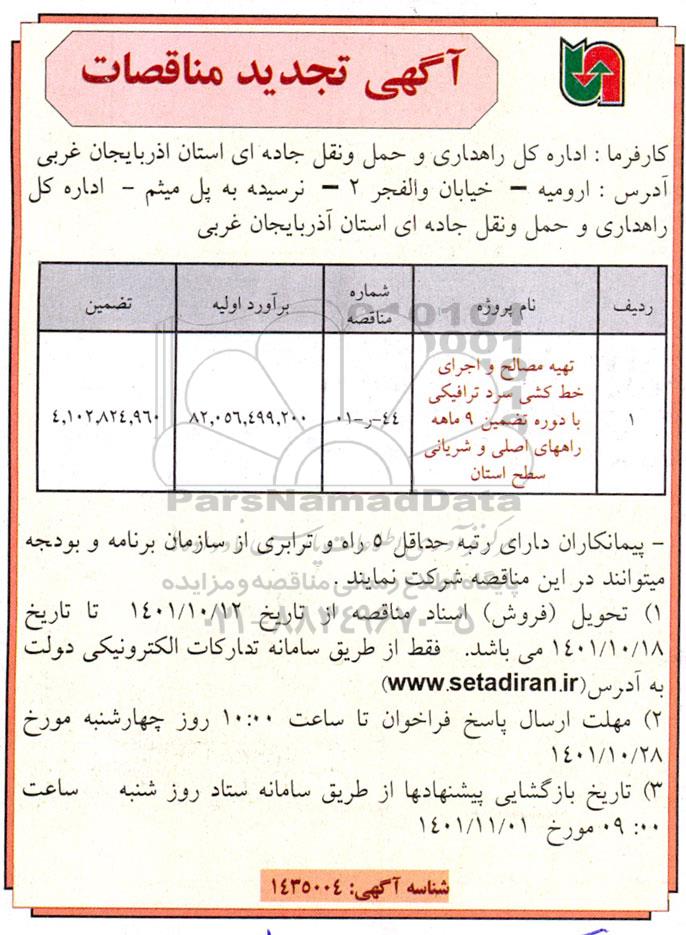 آگهی تجدید مناقصات
کارفرما : اداره کل راهداری و حمل ونقل جاده ای استان اذربایجان غربی
آدرس : ارومیه – خیابان والفجر ۲ – نرسیده به پل میثم – اداره کل
راهداری و حمل ونقل جاده ای استان آذربایجان غربی
ردیف نام پروژه شماره مناقصه برآورد اولیه تضمین
تهیه مصالح و اجرای
خط کشی سرد ترافیکی
۱ با دوره تضمین ۹ ماهه ۴۴-ر-۰۱ ۸۲,۰۵۶,۴۹۹,۲۰۰ ۴,۱۰۲,۸۲۴,۹۶۰
راههای اصلی و شریانی
سطح استان
ParsNamadData
– پیمانکاران دارای رتبه حداقل ۵ راه و ترابری از سازمان برنامه و بودجه
میتوانند در این مناقصه شرکت نمایند .
پایگاه اطلاع رسانی مناقصه و مزایده
۱) تحویل (فروش) اسناد مناقصه از تاریخ ۱۴۰۱/۱۰/۱۲ تا تاریخ
۰۲۱-۸۸۳۴۹۶۷۰-۵
۱۴۰۱/۱۰/۱۸ می باشد. فقط از طریق سامانه تدارکات الکترونیکی دولت
به آدرس(www.setadiran.ir)
۲) مهلت ارسال پاسخ فراخوان تا ساعت ۱۰:۰۰ روز چهارشنبه مورخ
۱۴۰۱/۱۰/۲۸
۳) تاریخ بازگشایی پیشنهادها از طریق سامانه ستاد روز شنبه ساعت
۰۹ :۰۰ مورخ ۱۴۰۱/۱۱/۰۱
شناسه آگهی: ۱۴۳۵۰۰۴